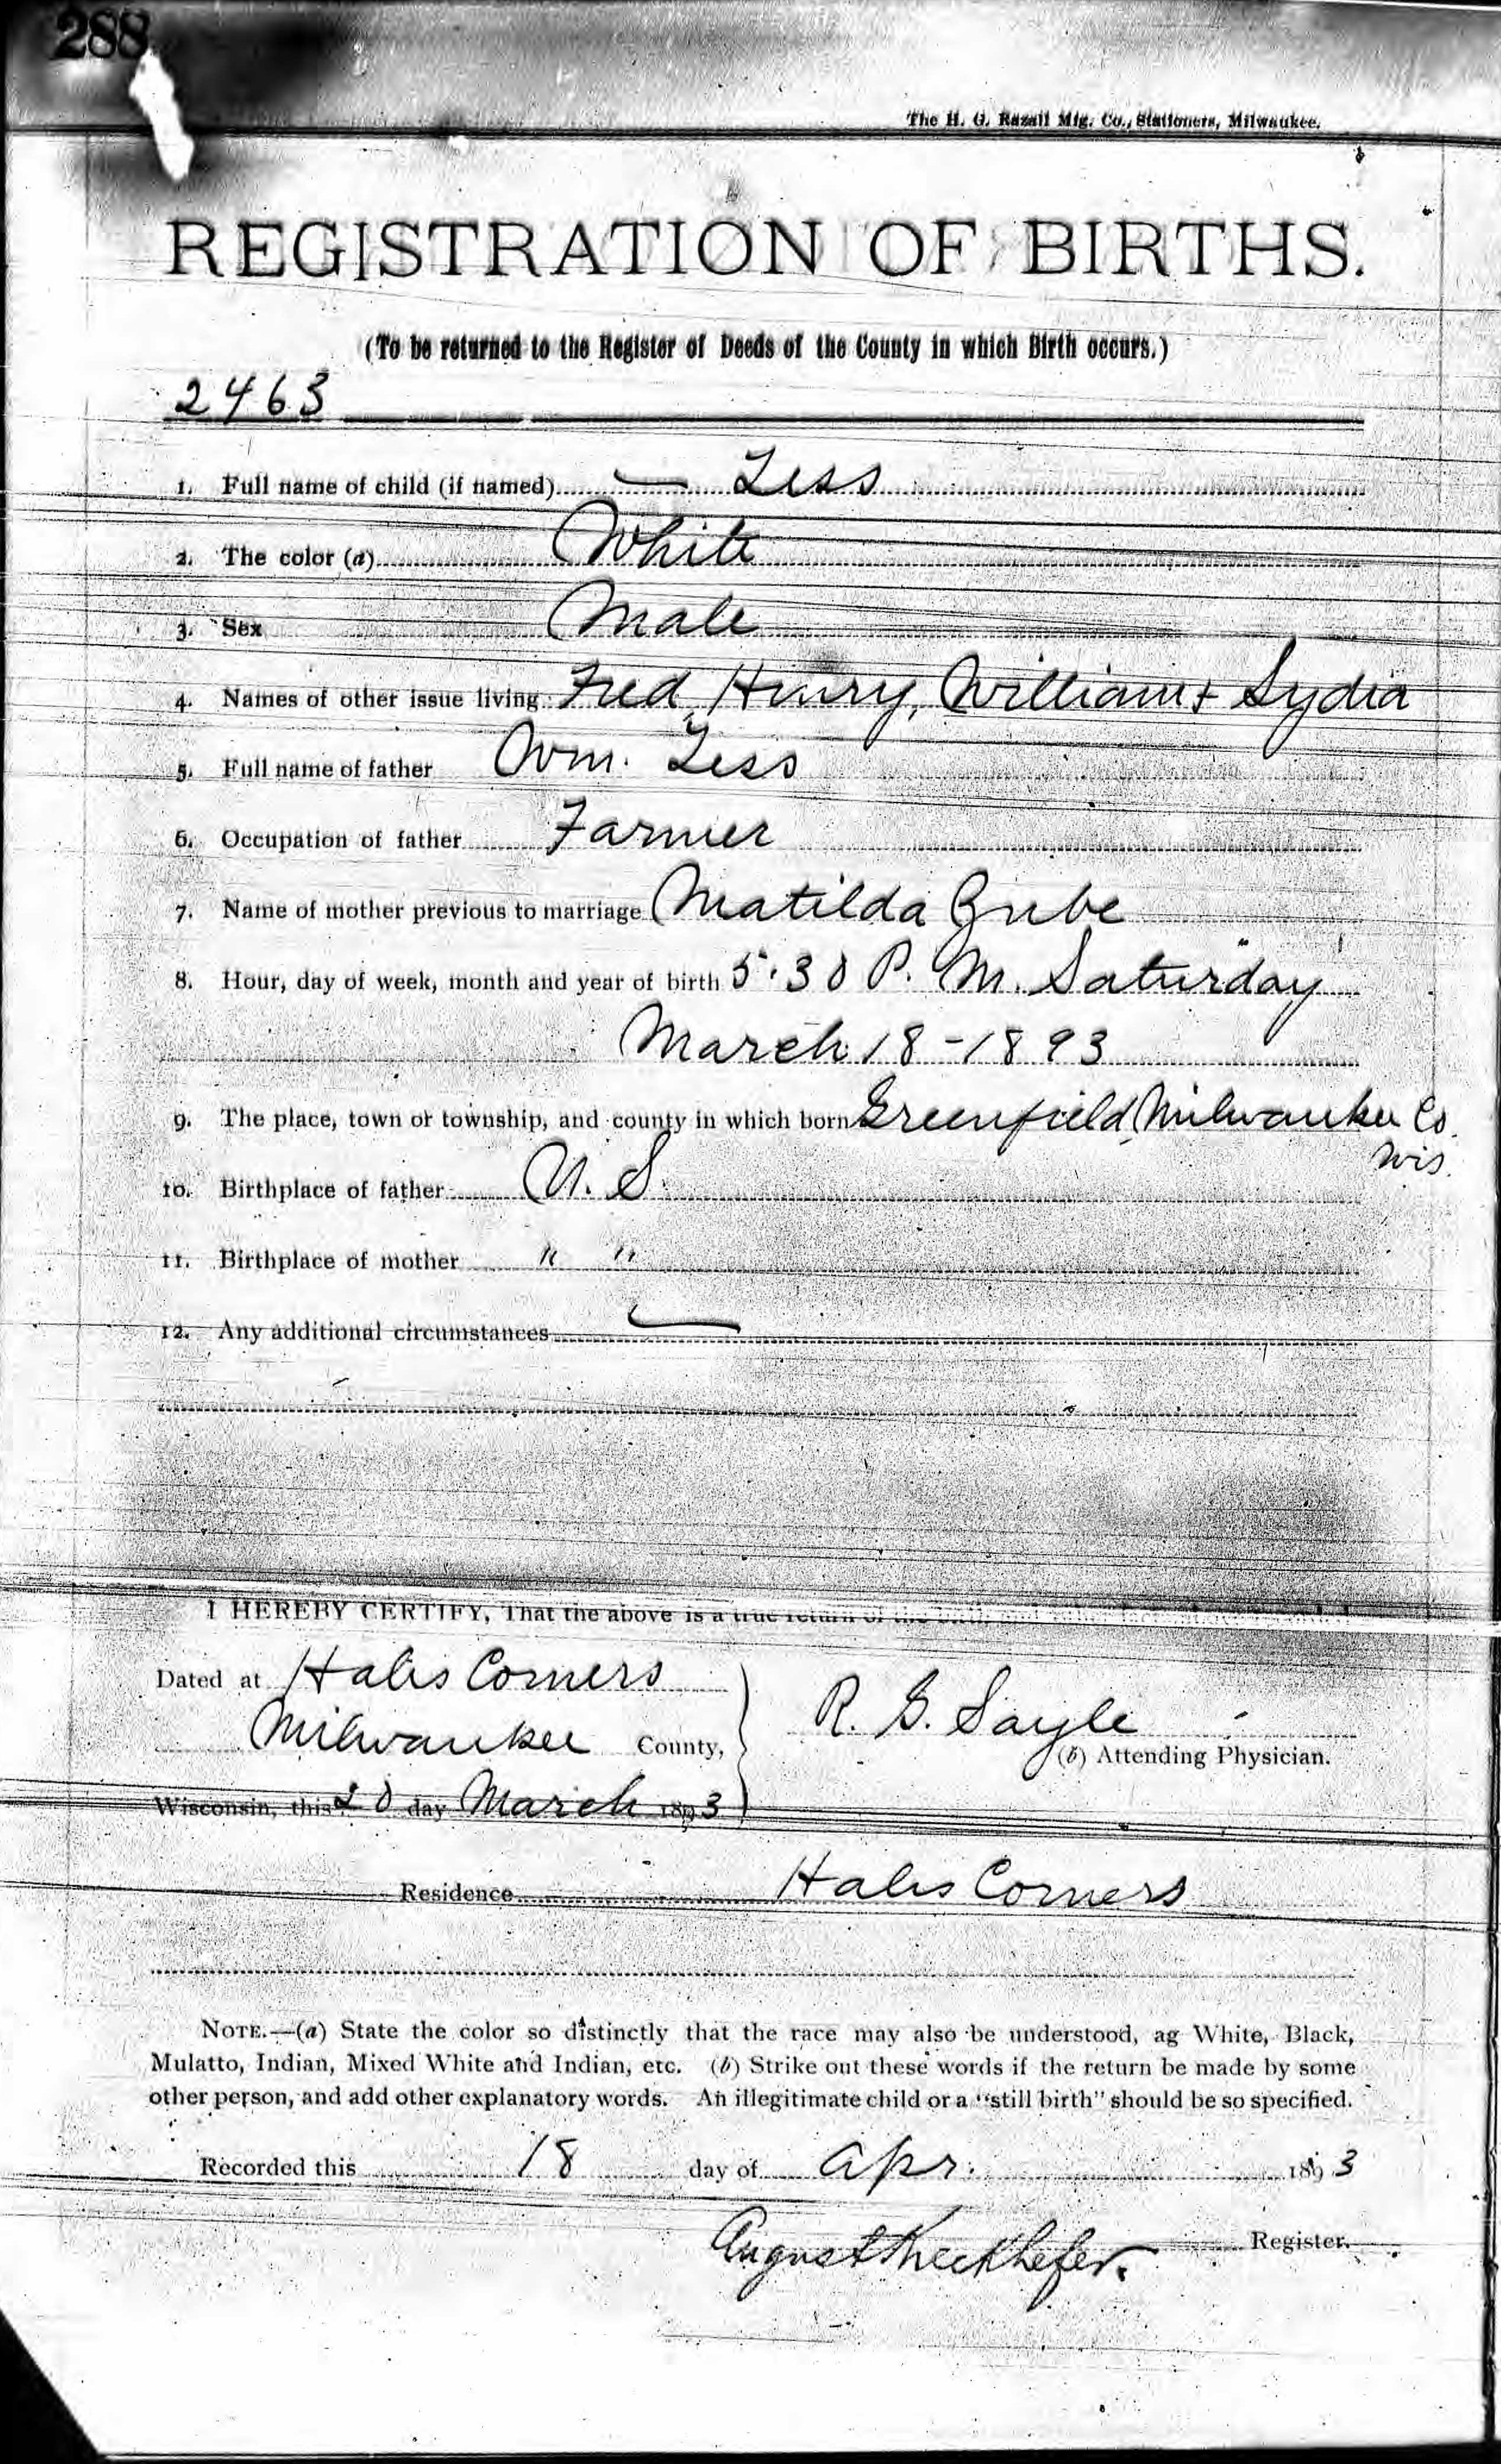 288
The H. G. Razall Mfg. Co., Stationers, Milwaukee.
REGISTRATION OF BIRTHS.
(To be returned to the Register of Deeds of the County in which Birth occurs.)
2463
1. Full name of child (if named) — Zess
2. The color (a) White
3. Sex Male
4. Names of other issue living Fred, Henry, William + Lydia
5. Full name of father Wm. Zess
6. Occupation of father Farmer
7. Name of mother previous to marriage Matilda Grube
8. Hour, day of week, month and year of birth 5:30 P. M. Saturday
March 18-1893
9. The place, town or township, and county in which born Greenfield, Milwaukee Co.
Wis.
10. Birthplace of father U. S.
11. Birthplace of mother " "
12. Any additional circumstances —
I HEREBY CERTIFY, That the above is a true return of the birth
Dated at Hales Corners
Milwaukee County,
R. G. Sayle
(b) Attending Physician.
Wisconsin, this 20 day March 1893
Residence Hales Corners
NOTE.—(a) State the color so distinctly that the race may also be understood, as White, Black,
Mulatto, Indian, Mixed White and Indian, etc. (b) Strike out these words if the return be made by some
other person, and add other explanatory words. An illegitimate child or a "still birth" should be so specified.
Recorded this 18 day of Apr. 1893
August Kieckhefer. Register.